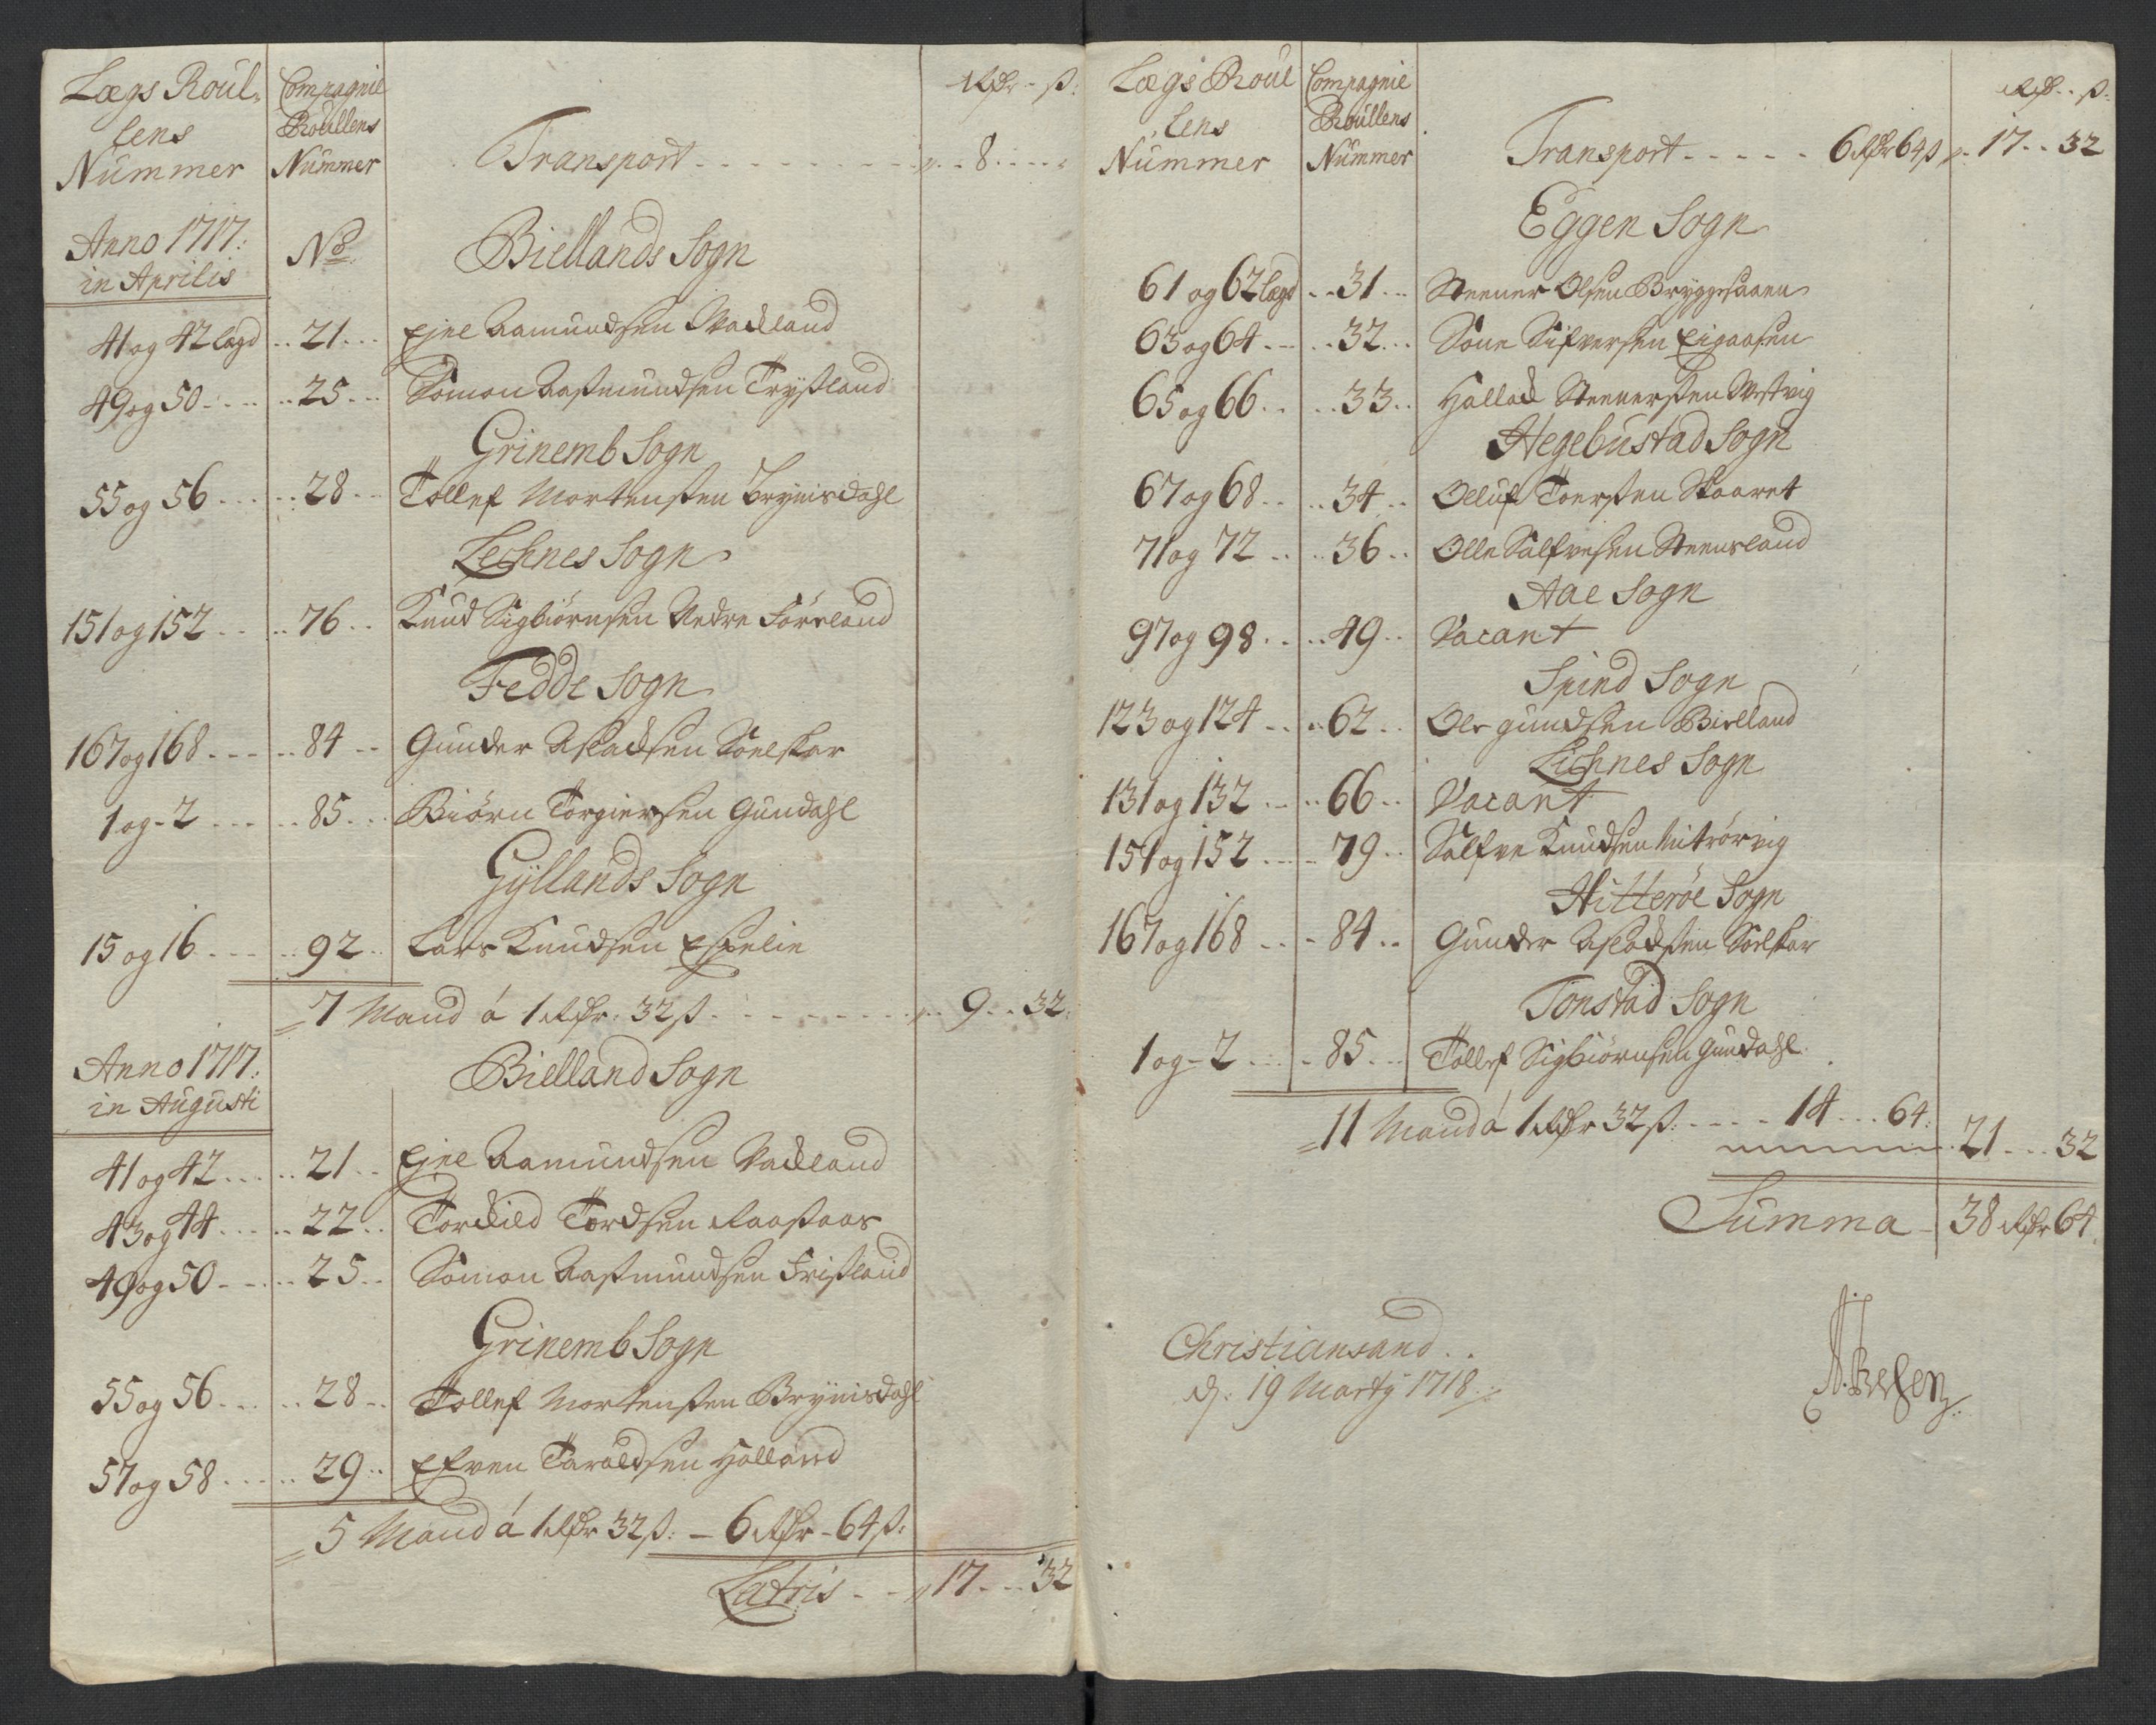 Lægs Roul-
lens
Nummer
Compagnie
Roullens
Nummer
Rdr - ß:
Transport - - - - - - - - 8 - - -
Anno 1717:
in Aprilis
No.
Biellands Sogn
41 og 42 lagd .. 21 ... Ejel Aamundsen Vadland
49 og 50 .... 25 ... Somon Aasmundsen Trysland
Grinemb Sogn
55 og 56 .... 28 .. Tollef Mortensen Brynisdahl
Lechnes Sogn
151 og 152 .... 76 .. Knud Sigbiörnsen Nedre Förland
Fedde Sogn
167 og 168 .... 84 .. Gunder Askadsen Soelskar
1 og - 2 .... 85 ... Biörn Torgiersen Gundahl
Gyllands Sogn
15 og 16 .... 92 .. Lars Knudsen Espelie
7 Mand á 1 Rdr: 32 ß - - - - - - 9 .. 32.
Anno 1717:
in Augusti
Bielland Sogn
41 og 42 .... 21 .. Ejel Aamundsen Vadland
43 og 44 .... 22 .. Torkild Tordsen Raasaas
49 og 50 .... 25 .. Somon Aasmundsen Trisland
Grinemb Sogn
55 og 56 .... 28 .. Tollef Mortensen Brynisdahl
57 og 58 .... 29 .. Efven Taraldsen Holland
5 Mand á 1 Rdr 32 ß: - 6 Rdr - 64 ß:
Latris - - 17 - - 32
Lægs Roul
lens
Nummer
Compagnie
Roullens
Nummer
Rdr .. ß:
Transport - - - - - 6 Rdr 64 ß 17 .. 32
Eggen Sogn
61 og 62 lagd .. 31 ... Steener Olsen Bryggesaaen
63 og 64 .... 32 ... Sone Sifversen Eigaasen
65 og 66 .... 33 .. Hallad Steenersen
Hegebustad Sogn
67 og 68 .... 34 .. Olluf Toersen Skaaret
71 og 72 .... 36 .. Olle Salfvesen Steensland
Aae Sogn
97 og 98 .... 49 .. Vacant
Spind Sogn
123 og 124 .... 62 .. Ole gundsen Bielland
Lichnes Sogn
131 og 132 .... 66 .. Vacant
151 og 152 .... 79 .. Salfve Knudsen
Hitteröe Sogn
167 og 168 .... 84 .. Gunder Askadsen Söelskar
Tonstad Sogn
1 og - 2 .... 85 ... Tollef Sigbiörnsen Gundahl
11 Mand á 1 Rdr 32 ß: - - - - 14 ... 64:
21 ... 32
Summa - 38 Rdr 64.
Christiansand.
d. 19 Martij 1718.